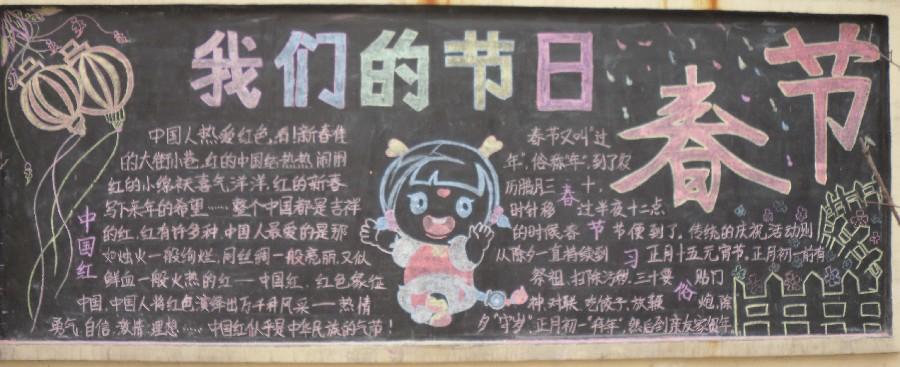 我们的节日
春节
中国红
中国人热爱红色,看!新春佳
的大街小巷,红的中国结热热闹闹
红的小绵袄喜气洋洋,红的新春
写下来年的希望……整个中国都是吉祥
的红,红有许多种,中国人最爱的是那
如烛火一般绚烂,同丝绸一般亮丽,又似
鲜血一般火热的红——中国红,红色象征
中国,中国人将红色演绎出万千种风采——热情
勇气,自信,激情,理想……中国红似乎是中华民族的气节!
春节习俗
春节又叫"过
年",俗称"年",到了农
历腊月三十,
时针移过半夜十二点
的时候春节便到了。传统的庆祝活动则
从除夕一直持续到正月十五元宵节。正月初一前有
祭祖,扫除污秽,三十要贴门
神,对联,吃饺子,放鞭炮,除
夕"守岁",正月初一"拜年",然后到亲友家贺年